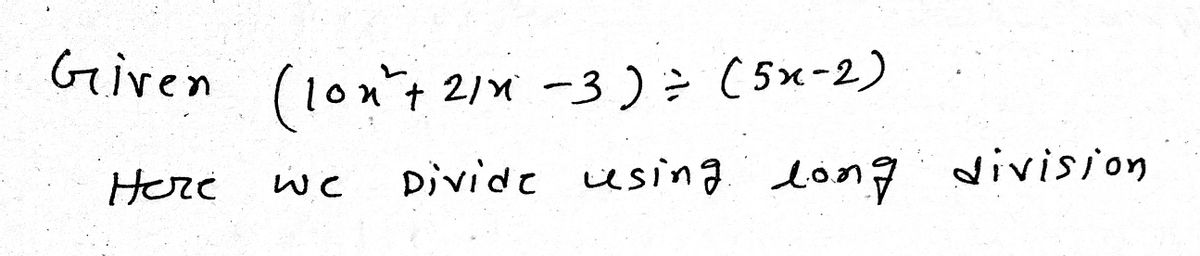 Given (10x²+ 21x -3) ÷ (5x-2)
Here we Divide using long division